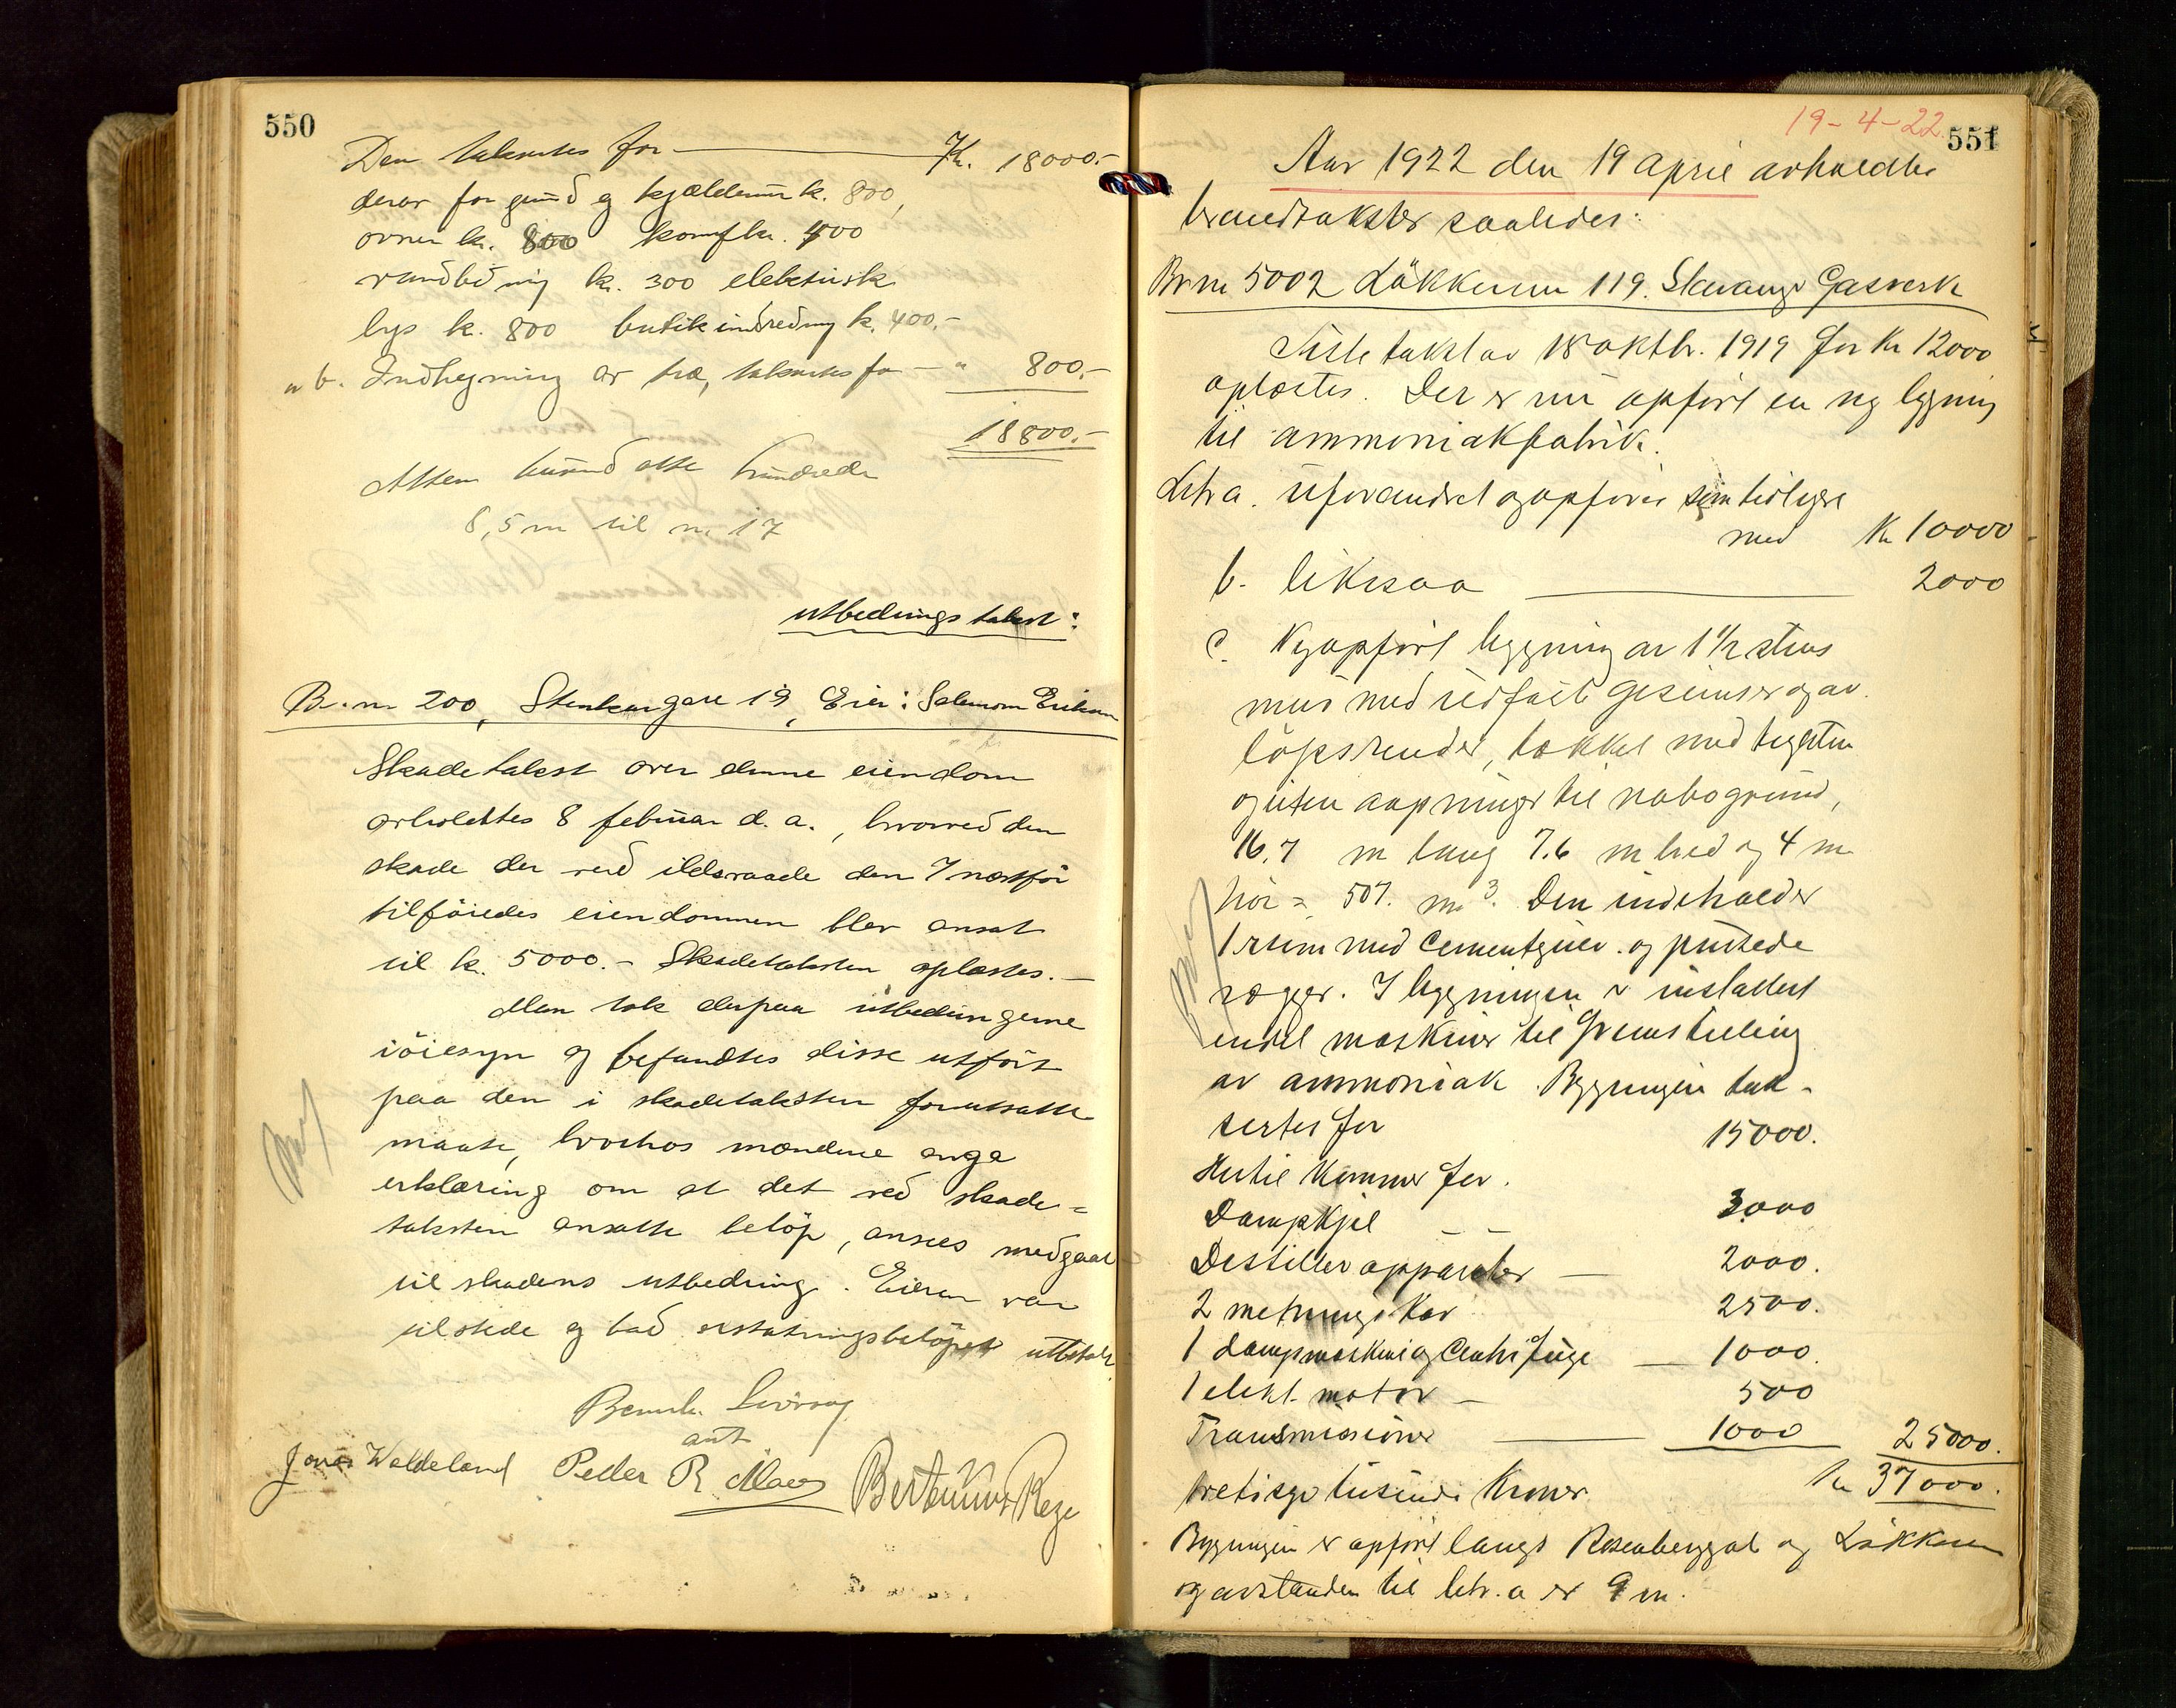 550
Den takseres for Kr. 18000.-
derav for grund og kjældermur k. 800,
ovner k. 800 komfkr. 400
vandledning kr. 300 elektrisk
lys k. 800 butikindredning k. 400.-
" b. Indhegning av træ, takseres for - " 800.-
18800.-
Atten tusund otte hundrede
8,5 m til nr 17
utbedringstakst:
Br. nr 200, Stenkargaten 19, Eier: Salomon Eriksen
Skadetakst over denne eiendom
avholdttes 8 februar d. a., hvorved den
skade der ved ildsvaade den 7 næstfør
tilføiedes eiendommen blev ansat
til k. 5000.- Skadetaksten oplæstes.-
Man tok derpaa utbedringerne
iøiesyn og befandtes disse utført
paa den i skadetaksten forutsatte
maate, hvorhos mændene avga
erklæring om at det ved skade-
taksten ansatte beløp, ansees medgaat
til skadens utbedring. Eieren var
tilstede og bad erstatningsbeløpet utbetalt
Bernh. Sivrag
ant
Jonas Waldeland Peder R Maaøy Bertinius Rege
19-4-22. 551
Aar 1922 den 19 april avholdtes
brandtakster saaledes:
Br nr 5002 Løkkeveien 119. Stavanger Gasverk
Sidste takst av 18 oktbr. 1919 for kr 12000
oplæstes. Der er nu opført en ny bygning
til ammoniakfabrik.
Litr a. Uforandret og opføres som tidligere
med Kr 10000
b. likesaa 2000
c. Nyopført bygning av 1 1/2 stens
mur med gesimser og av
løpsrender, tækket med teglsten
og uten aapninger til nabogrund,
16.7 m lang 7.6 m bred og 4 m
høi = 507. m3. Den indeholder
1 rum med cementgulv. og pussede
vægger. I bygningen er installert
endel maskiner til fremstilling
av ammoniak. Bygningen tak-
sertes for 15000.
Hertil kommer for.
Dampkjel 3000
Destillerapparater 2000.
2 metningskar 2500.
1 dampmaskine og Centrifuge 1000.
1 elekt. motor 500
Transmissioner 1000 25000.
tretisyv tusinde kroner Kr 37000.
Bygningen er opført langs Rosenberggat og Løkkeveien
og avstanden til litr. a er 9 m.